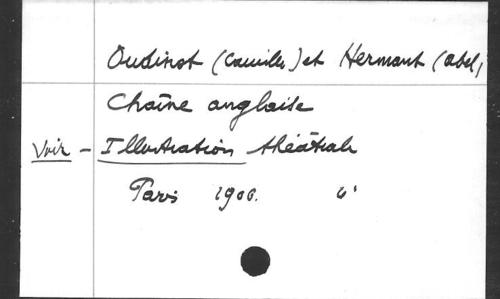 Oudinot (Camille) et Hermant (Abel)
Chaîne anglaise
Voir - Illustration théâtrale
Paris 1906. 4°